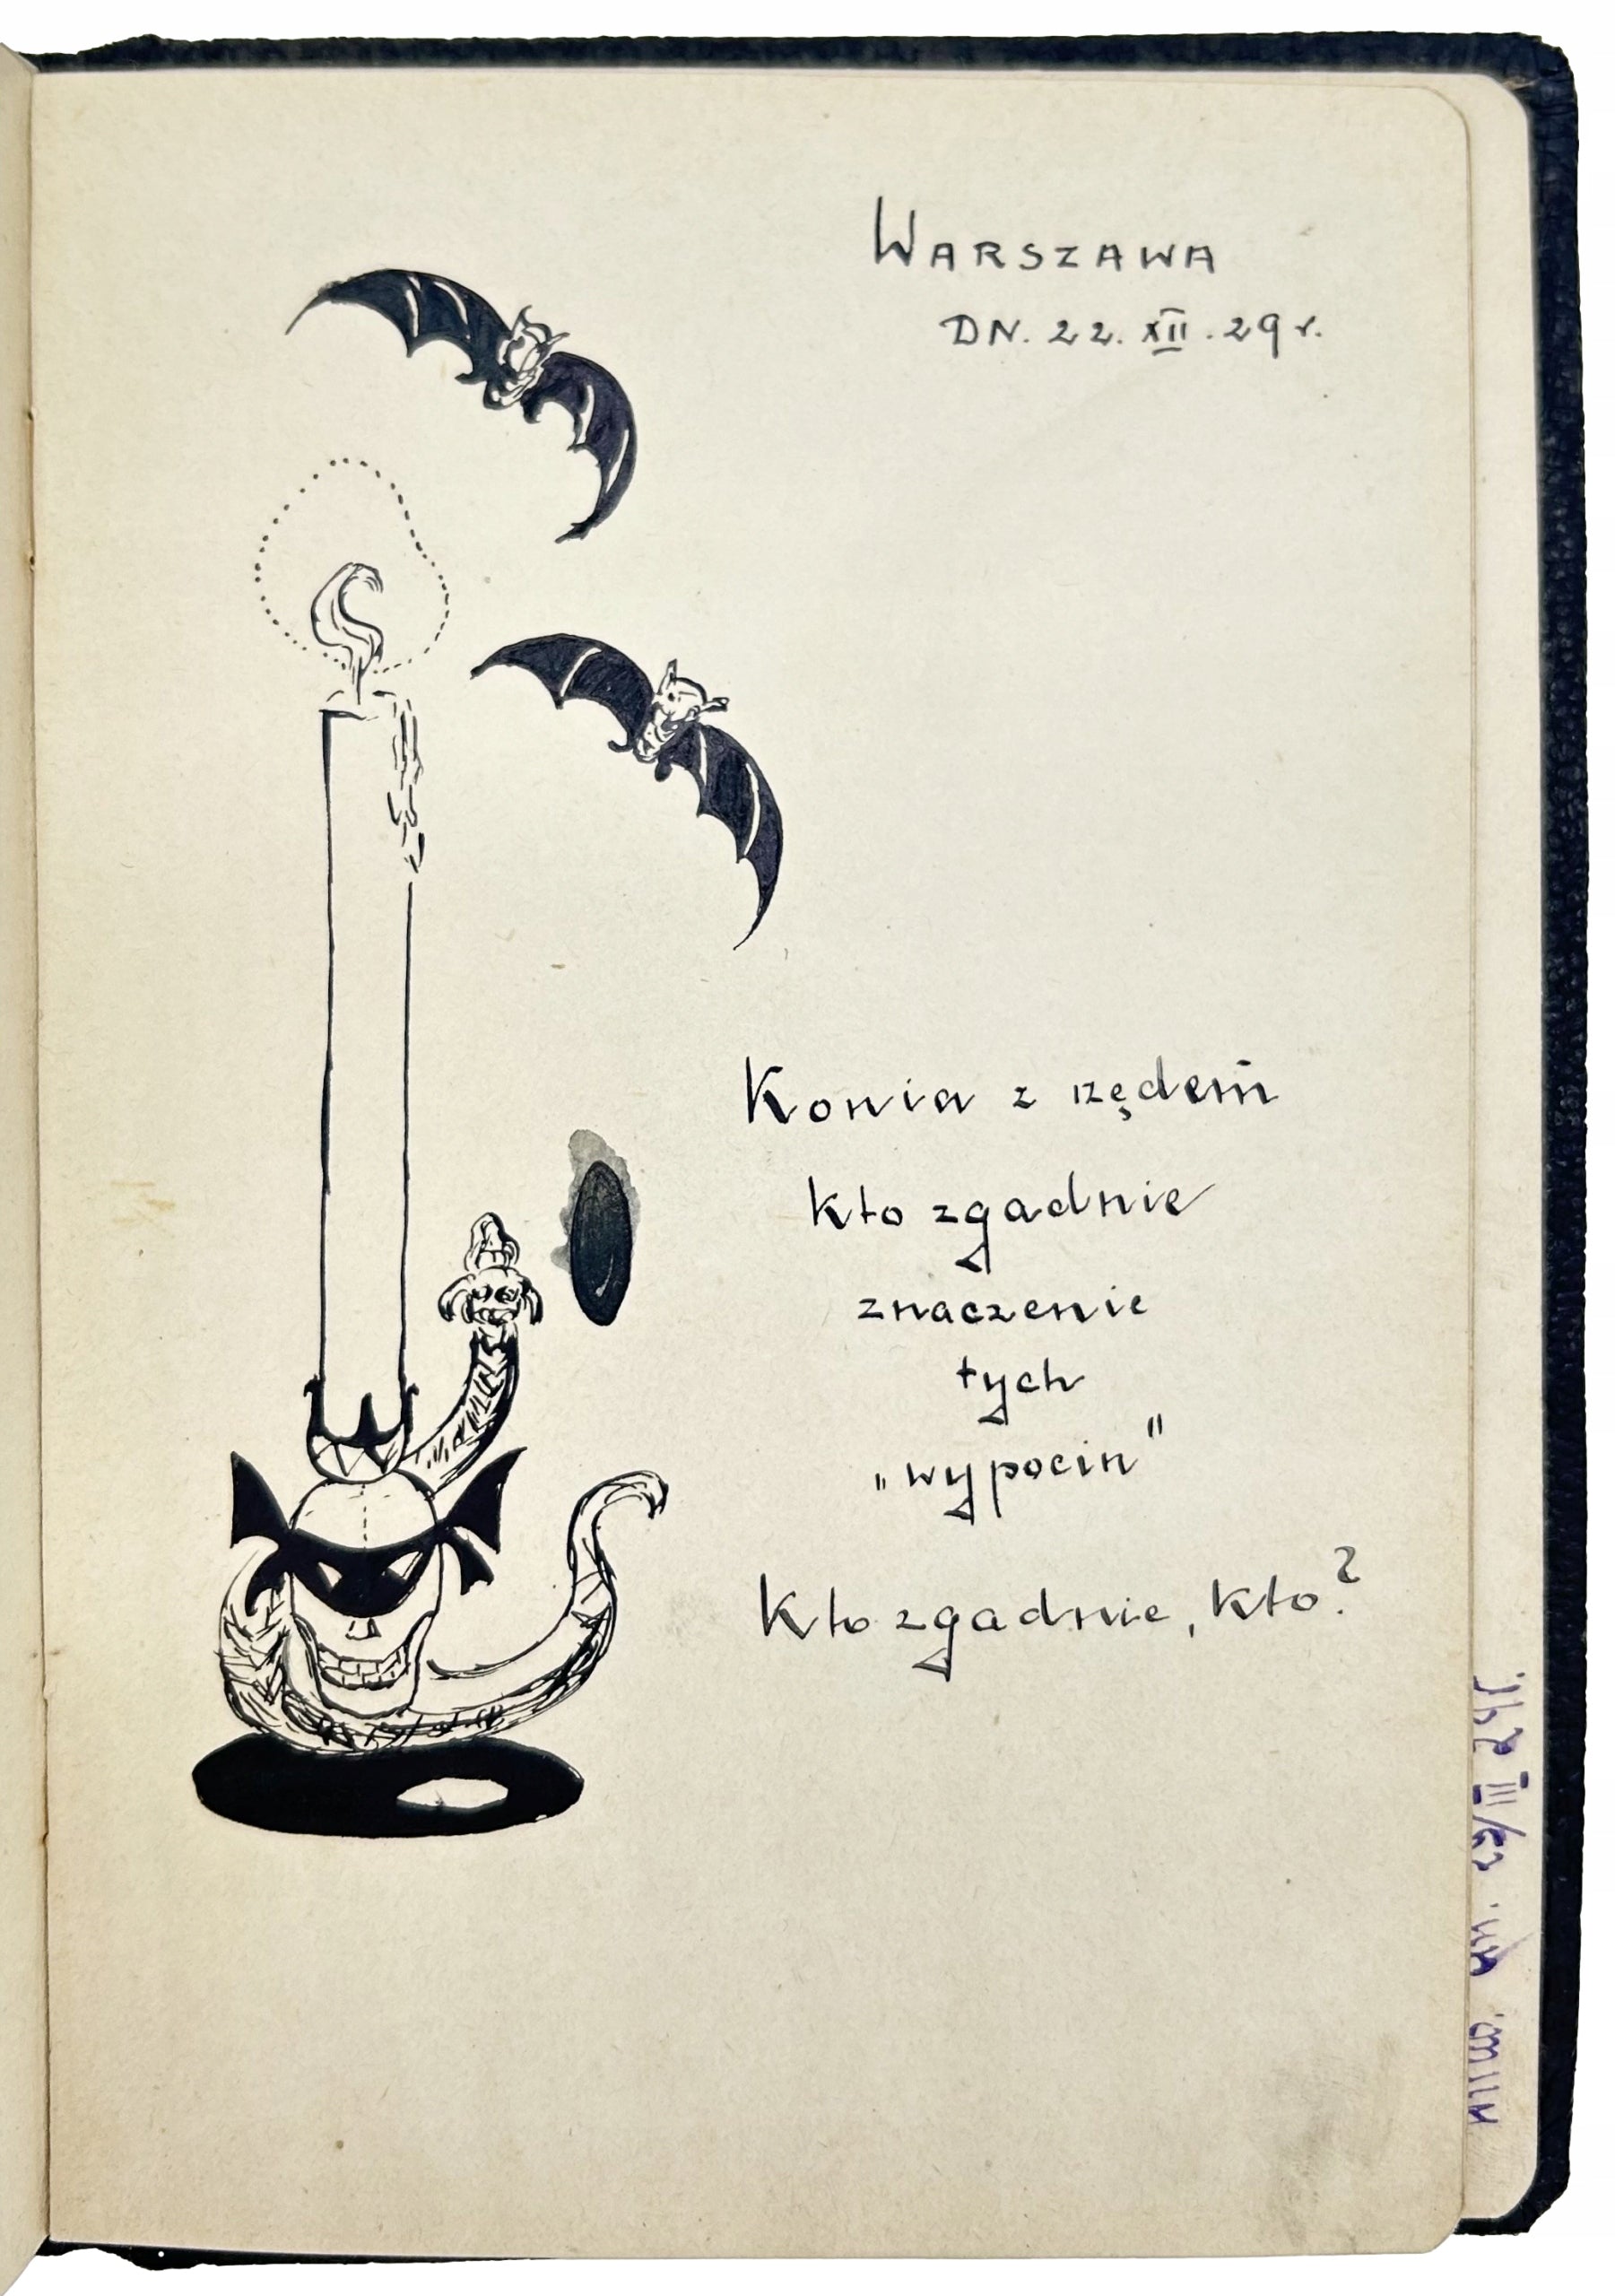 WARSZAWA
DN. 22. XII. 29 r.
Konia z rzędem
kto zgadnie
znaczenie
tych
„wypocin"
Kto zgadnie, kto?